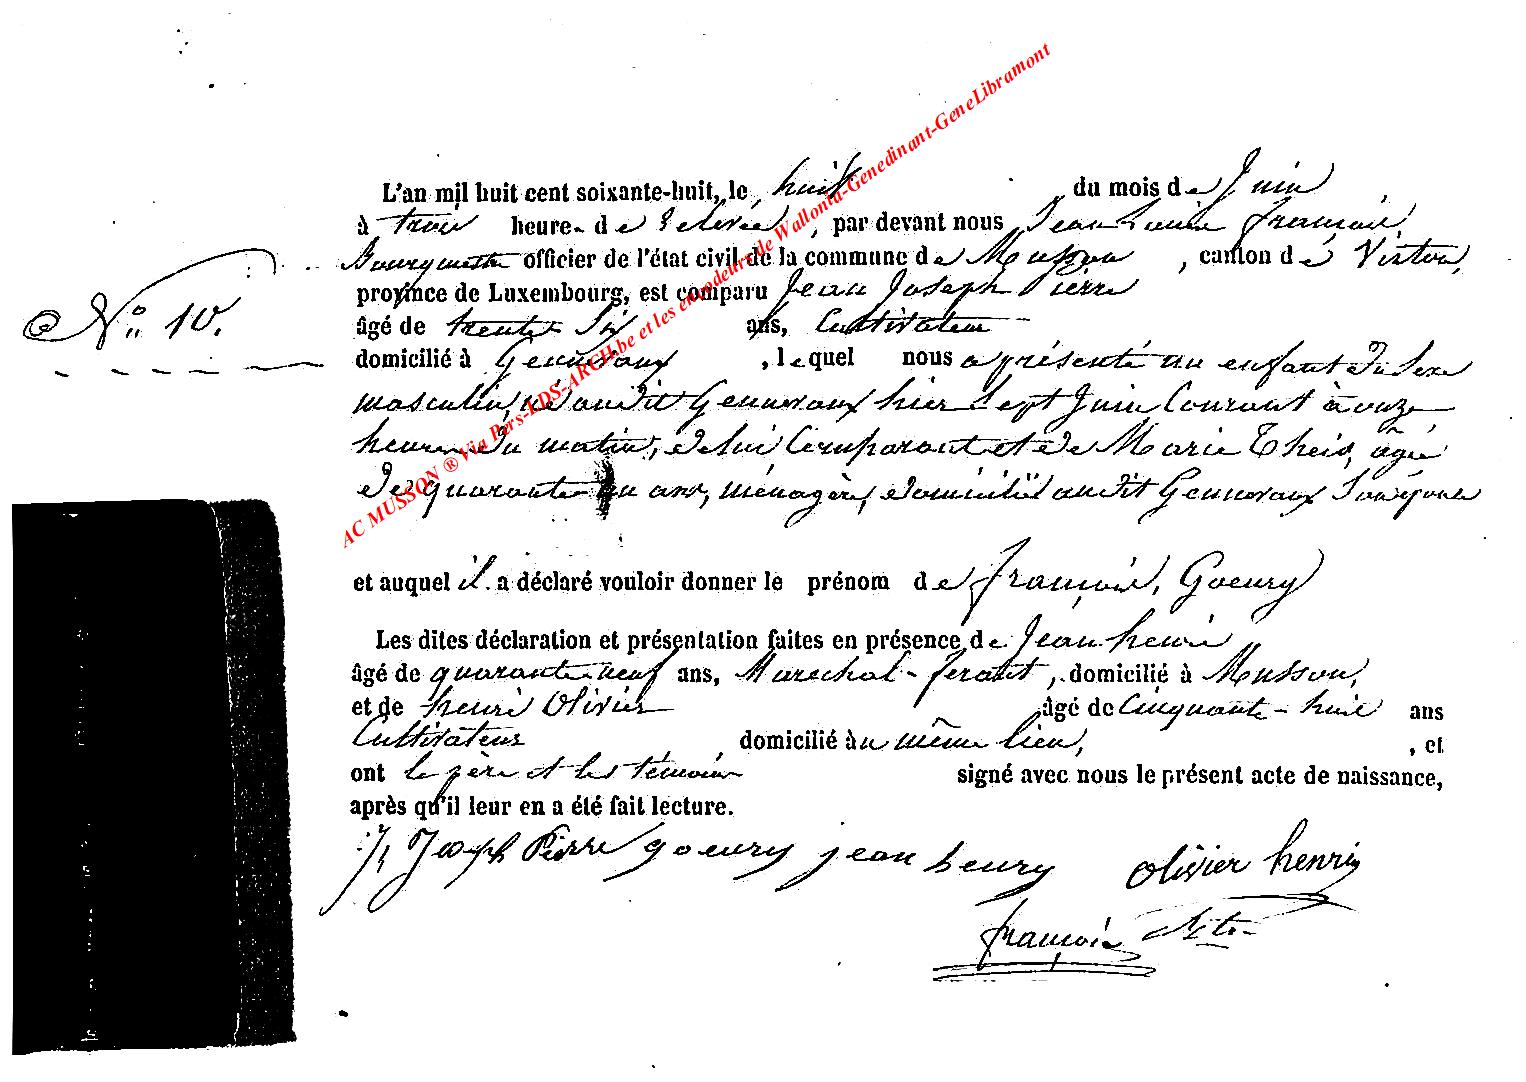 L'an mil huit cent soixante-huit, le huit du mois de Juin
à trois heures de relevée, par devant nous Jean Louis François
Bourgmestre officier de l'état civil de la commune de Musson, canton de Virton,
N° 10.
province de Luxembourg, est comparu Jean Joseph Pierre
âgé de trente Six ans, Cultivateur
domicilié à Gennevaux, lequel nous a présenté un enfant du Sexe
masculin, né audit Gennevaux hier Sept Juin Courant à onze
heures du matin, de lui Comparant et de Marie Theis, âgée
de quarante un ans, ménagère, domiciliée audit Gennevaux Son épouse
et auquel il a déclaré vouloir donner le prénom de François, Goeury
Les dites déclaration et présentation faites en présence de Jean henri
âgé de quarante neuf ans, Marechal-ferant, domicilié à Musson,
et de henri Olivier âgé de Cinquante-huit ans
Cultivateur, domicilié au même lieu, , et
ont le père et les témoins signé avec nous le présent acte de naissance,
après qu'il leur en a été fait lecture.
J Joseph Pierre goeury jean henry olivier henri
françois
AC MUSSON ® Via Pers-LDS-ARCH.be et les encodeurs de Wallonia-Genedinant-GeneLibramont